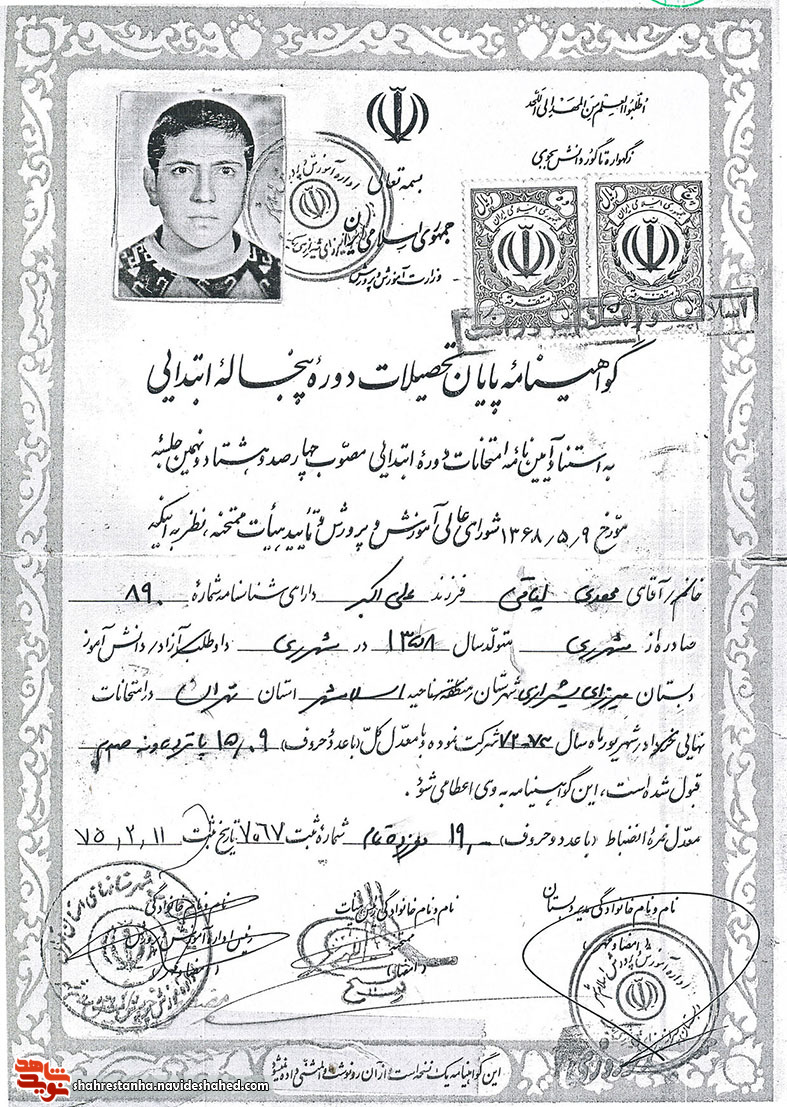 اطلبوا العلم من المهد الی اللحد
زگهواره تا گور دانش بجوی
بسمه تعالی
جمهوری اسلامی ایران
وزارت آموزش و پرورش
گواهینامه پایان تحصیلات دوره پنجساله ابتدایی
به استناد آیین نامه امتحانات دوره ابتدایی مصوب چهارصد و هشتاد و نهمین جلسه
مورخ ۱۳۶۸/۵/۹ شورای عالی آموزش و پرورش و تأیید هیأت ممتحنه، نظر به اینکه
خانم/آقای مهدی فرزند علی اکبر دارای شناسنامه شماره ۸۹۰
صادره از شهرری متولد سال ۱۳۵۸ در شهرری داوطلب آزاد/دانش آموز
دبستان میرزای شیرازی شهرستان/منطقه/ناحیه اسلامشهر استان تهران در امتحانات
نهایی خرداد/شهریور ماه سال ۷۳-۷۲ شرکت نموده و با معدل کل (با عدد و حروف) ۱۵/۰۹ پانزده و نه صدم
قبول شده است، این گواهینامه به وی اعطا می شود.
معدل نمره انضباط (با عدد و حروف) ۱۹/۰۰ نوزده تمام شماره ثبت ۷۰۶۷ تاریخ ثبت ۷۵/۲/۱۱
نام و نام خانوادگی مدیر دبستان
امضا و مهر
نام و نام خانوادگی رئیس هیأت
ممتحنه
امضا
نام و نام خانوادگی
رئیس اداره آموزش و پرورش
امضا و مهر
این گواهینامه یک نسخه است، از آن رونوشت المثنی داده نمیشود
نوید شاهد
shahrestanha.navideshahed.com